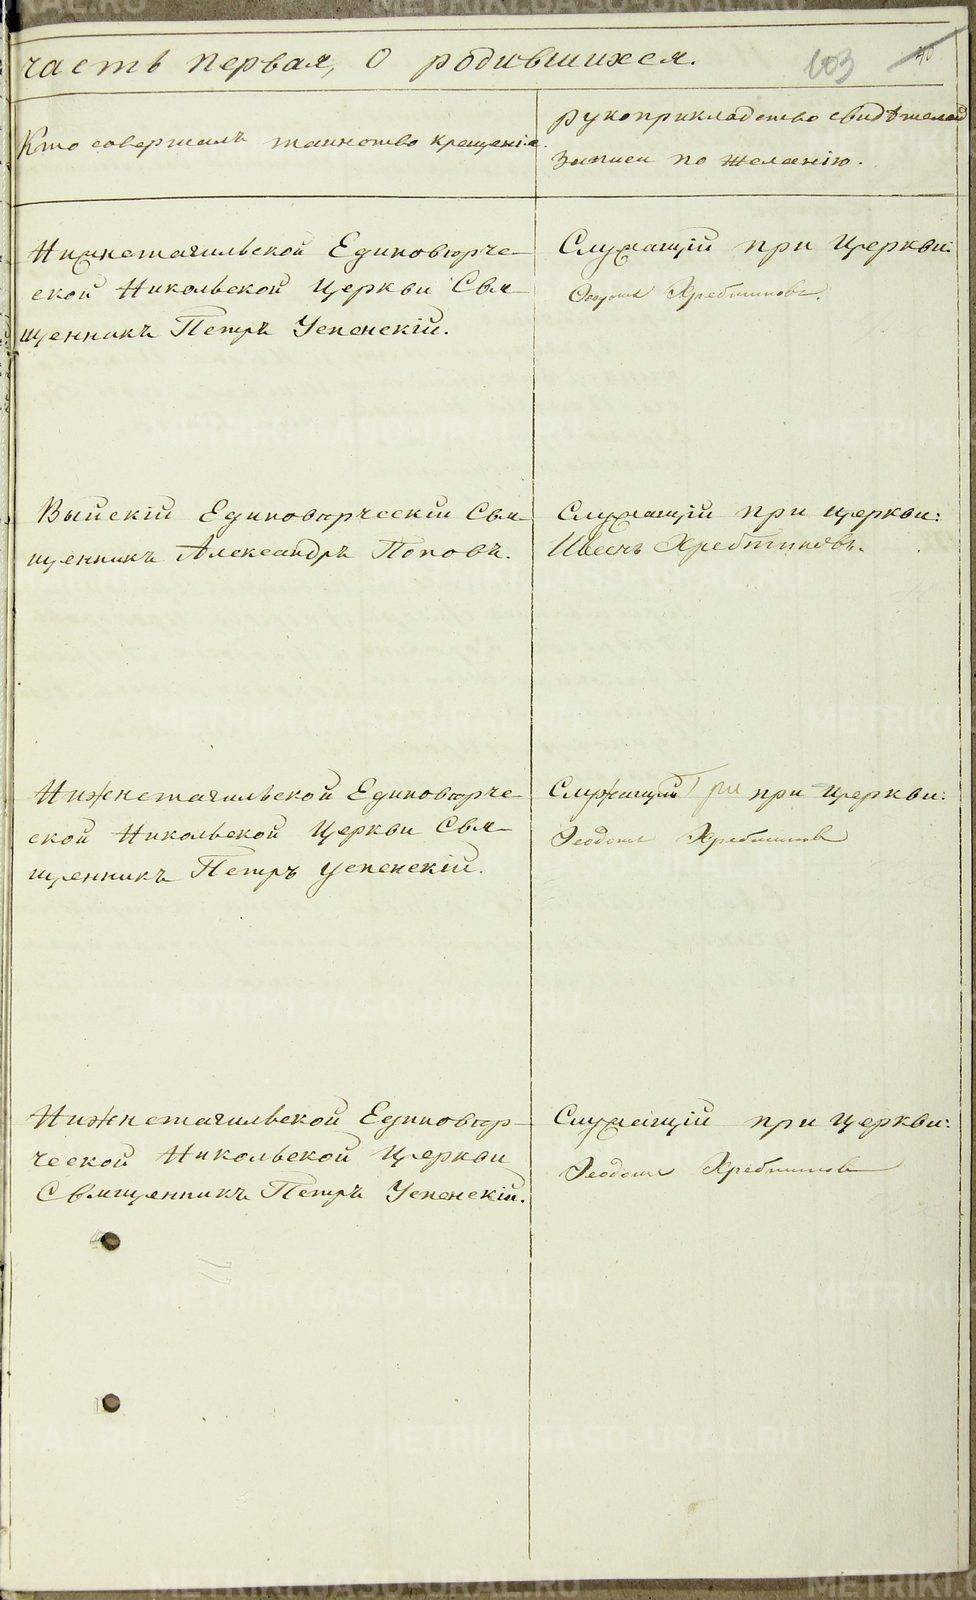 часть первая, о родившихся.
103
40
Кто совершалъ таинство крещенія.
рукоприкладство свидѣтелей
записи по желанію.
Нижнетагильской Единовѣрче-
ской Никольской Церкви Свя-
щенникъ Петръ Успенскій.
Служащій при Церкви:
Хребтиковъ.
Выйскій Единовѣрческій Свя-
щенникъ Александръ Поповъ.
Служащій при церкви:
Хребтиковъ.
Нижнетагильской Единовѣрче-
ской Никольской Церкви Свя-
щенникъ Петръ Успенскій.
Служащій при Церкви:
Феодотъ Хребтиковъ
Нижнетагильской Единовѣр-
ческой Никольской Церкви
Священникъ Петръ Успенскій.
Служащій при Церкви:
Феодотъ Хребтиковъ
METRIKI.GASO-URAL.RU